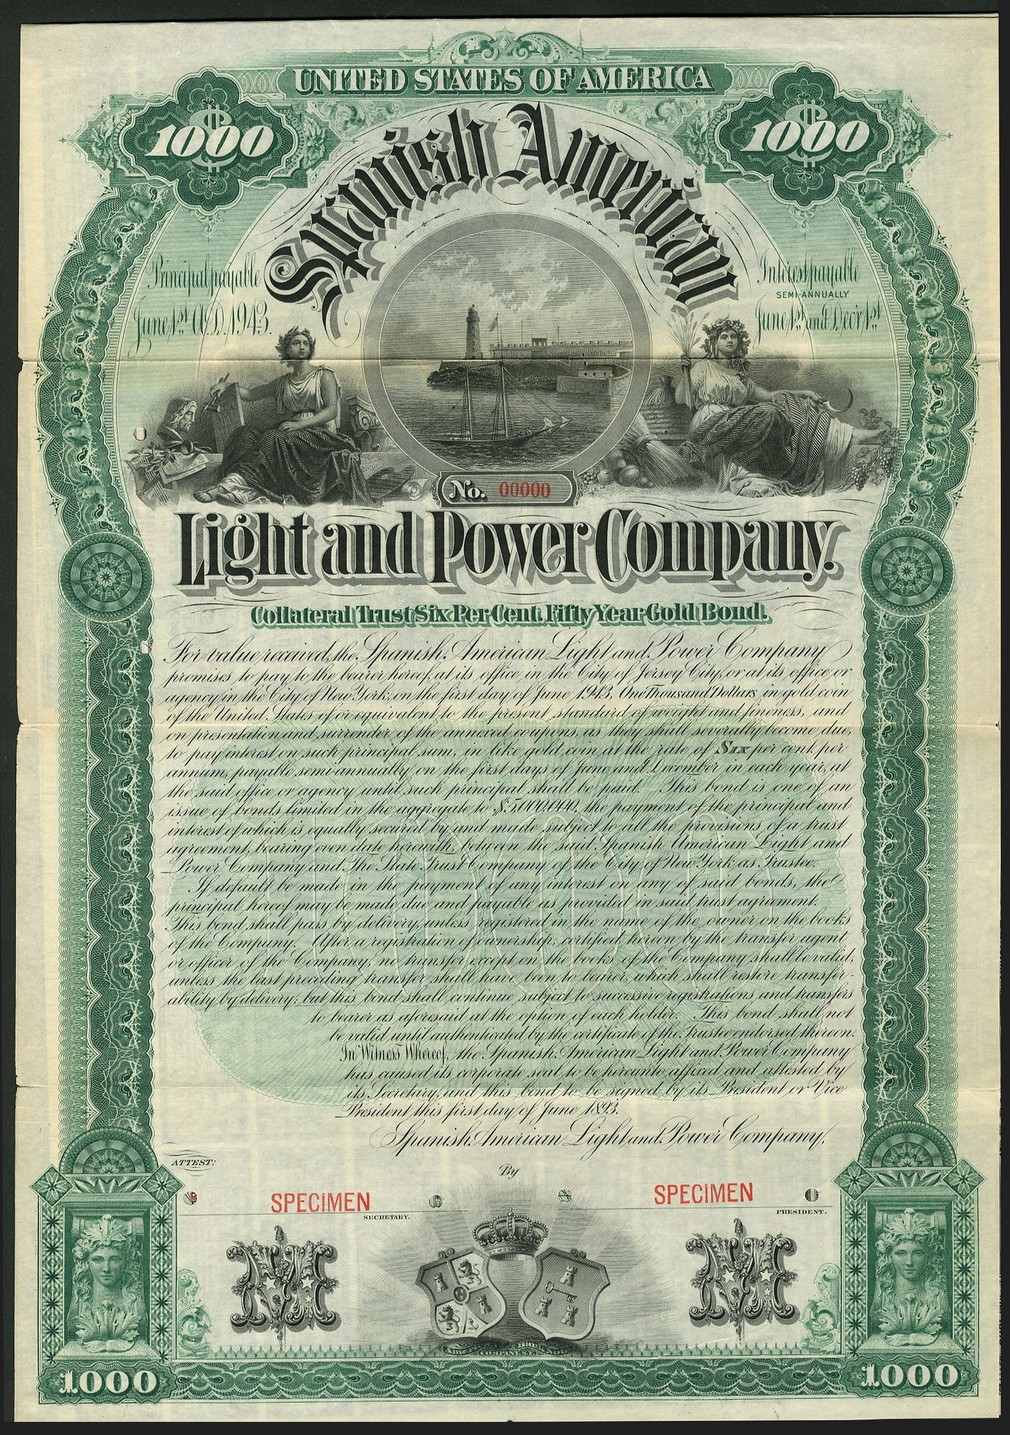 UNITED STATES OF AMERICA
$1000
$1000
Spanish American
Principal payable
June 1st A.D. 1943.
Interest payable
SEMI-ANNUALLY
June 1st and Dec'r 1st
No. 00000
Light and Power Company.
Collateral Trust Six Per Cent. Fifty Year Gold Bond.
For value received, the Spanish American Light and Power Company
promises to pay to the bearer hereof, at its office in the City of Jersey City, or at its office or
agency in the City of New York, on the first day of June 1943, One Thousand Dollars in gold coin
of the United States of or equivalent to the present standard of weight and fineness, and
on presentation and surrender of the annexed coupons, as they shall severally become due,
to pay interest on such principal sum, in like gold coin at the rate of Six per cent. per
annum, payable semi-annually on the first days of June and December in each year, at
the said office or agency until such principal shall be paid. This bond is one of an
issue of bonds limited in the aggregate to $5,000,000, the payment of the principal and
interest of which is equally secured by and made subject to all the provisions of a trust
agreement, bearing even date herewith, between the said Spanish American Light and
Power Company and The State Trust Company of the City of New York as Trustee.
If default be made in the payment of any interest on any of said bonds, the
principal hereof may be made due and payable as provided in said trust agreement.
This bond shall pass by delivery, unless registered in the name of the owner on the books
of the Company. After a registration of ownership, certified hereon by the transfer agent
or officer of the Company, no transfer except on the books of the Company shall be valid,
unless the last preceding transfer shall have been to bearer, which shall restore transfer-
ability by delivery; but this bond shall continue subject to successive registrations and transfers
to bearer as aforesaid at the option of each holder. This bond shall not
be valid until authenticated by the certificate of the Trustee endorsed thereon.
In Witness Whereof, the Spanish American Light and Power Company
has caused its corporate seal to be hereunto affixed and attested by
its Secretary, and this bond to be signed by its President or Vice
President this first day of June 1893.
Spanish American Light and Power Company,
ATTEST:
By
SPECIMEN
SPECIMEN
SECRETARY.
PRESIDENT.
M
M
1000
1000